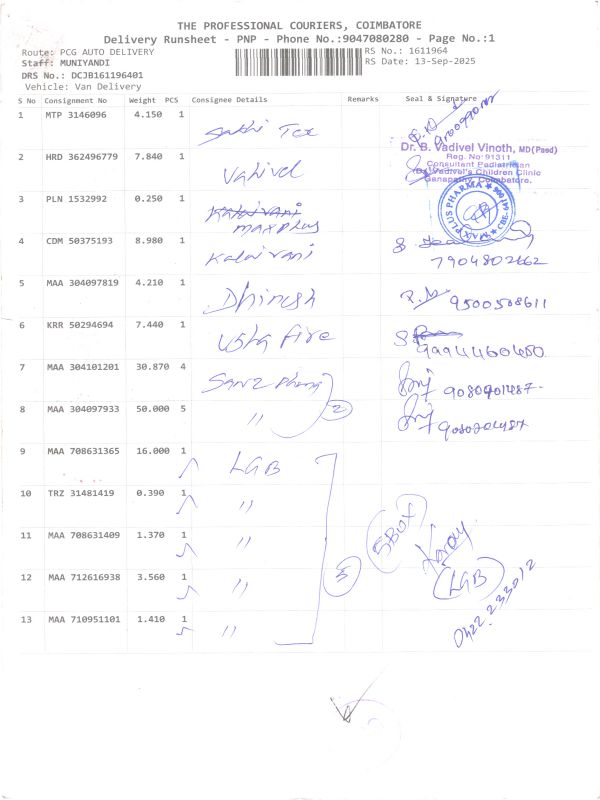 THE PROFESSIONAL COURIERS, COIMBATORE
Delivery Runsheet - PNP - Phone No.:9047080280 - Page No.:1
Route: PCG AUTO DELIVERY RS No.: 1611964
Staff: MUNIYANDI RS Date: 13-Sep-2025
DRS No.: DCJB161196401
Vehicle: Van Delivery
S No Consignment No Weight PCS Consignee Details Remarks Seal & Signature
1 MTP 3146096 4.150 1 Sakthi Tex
Dr. B. Vadivel Vinoth, MD(Paed)
Reg. No 91311
2 HRD 362496779 7.840 1 Vativel Consultant Pediatrician
Vadivel's Children Clinic
Ganapathy, Coimbatore.
3 PLN 1532992 0.250 1 Kalaivani
maxplus MAX PLUS PHARMA
4 CDM 50375193 8.980 1 Kalaivani
7904802662
5 MAA 304097819 4.210 1 Dhinesh 9500508611
6 KRR 50294694 7.440 1 Usha Fire
9994460450
7 MAA 304101201 30.870 4 SANZ 9080901487-
8 MAA 304097933 50.000 5 〃 2
9 MAA 708631365 16.000 1 LGB
10 TRZ 31481419 0.390 1 〃
11 MAA 708631409 1.370 1 〃 5BOX
12 MAA 712616938 3.560 1 〃 5 LGB
13 MAA 710951101 1.410 1 〃 0422 233012